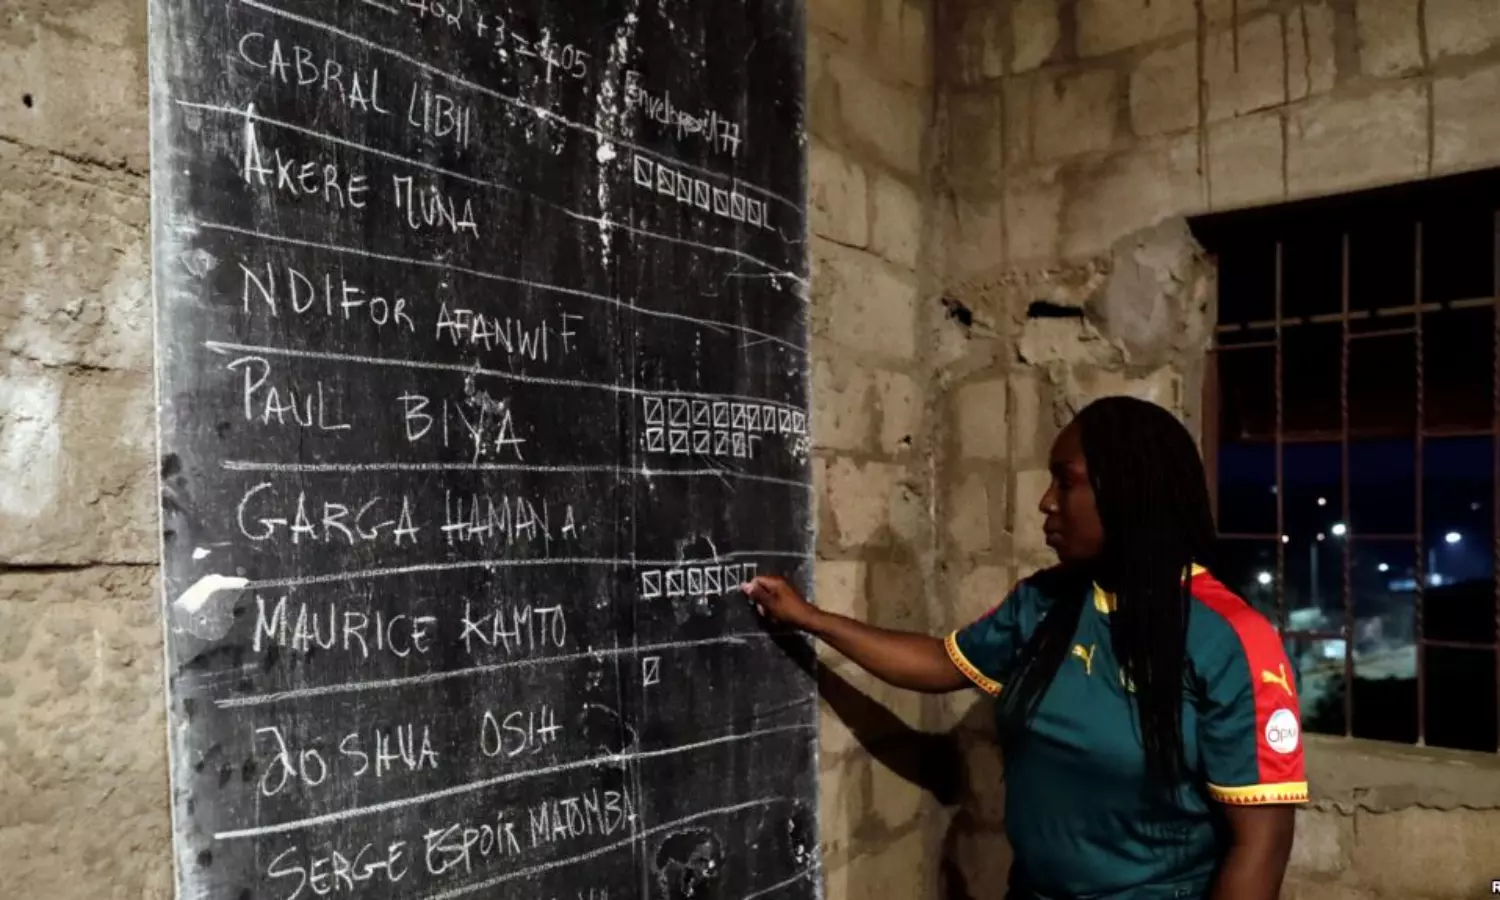 462 + 3 = 405
CABRAL LIBII
Enveloppe: 177
AKERE MUNA
NDIFOR AFANWI F
PAUL BIYA
GARGA HAMAN A.
MAURICE KAMTO
JOSHUA OSIH
SERGE ESPOIR MATOMBA
R